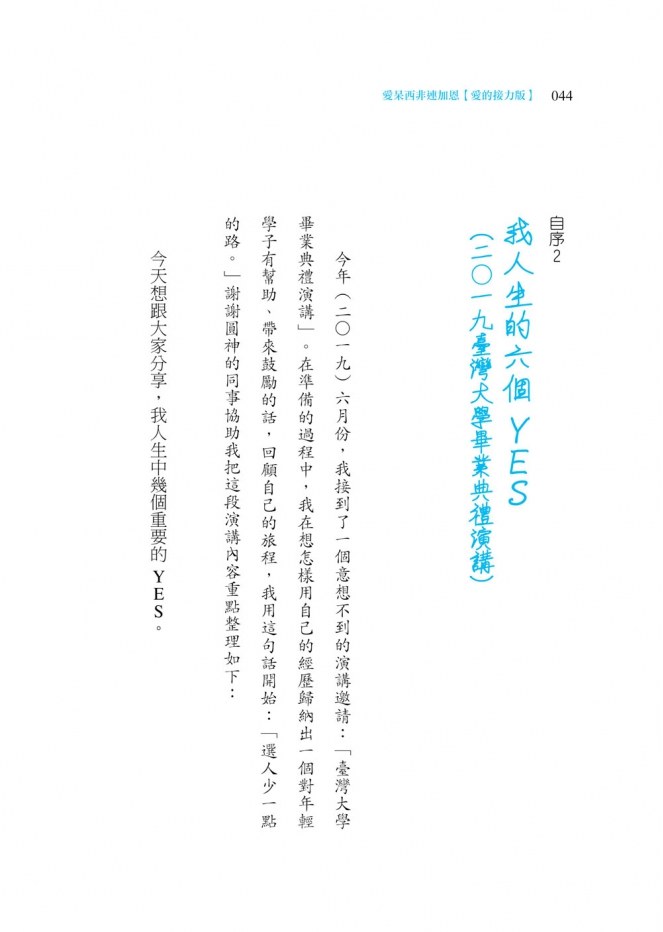 愛呆西非連加恩【愛的接力版】 044
自序2
我人生的六個YES
(二〇一九臺灣大學畢業典禮演講)
今年(二〇一九)六月份,我接到了一個意想不到的演講邀請:「臺灣大學
畢業典禮演講」。在準備的過程中,我在想怎樣用自己的經歷歸納出一個對年輕
學子有幫助、帶來鼓勵的話,回顧自己的旅程,我用這句話開始:「選人少一點
的路。」謝謝圓神的同事協助我把這段演講內容重點整理如下:
今天想跟大家分享,我人生中幾個重要的YES。